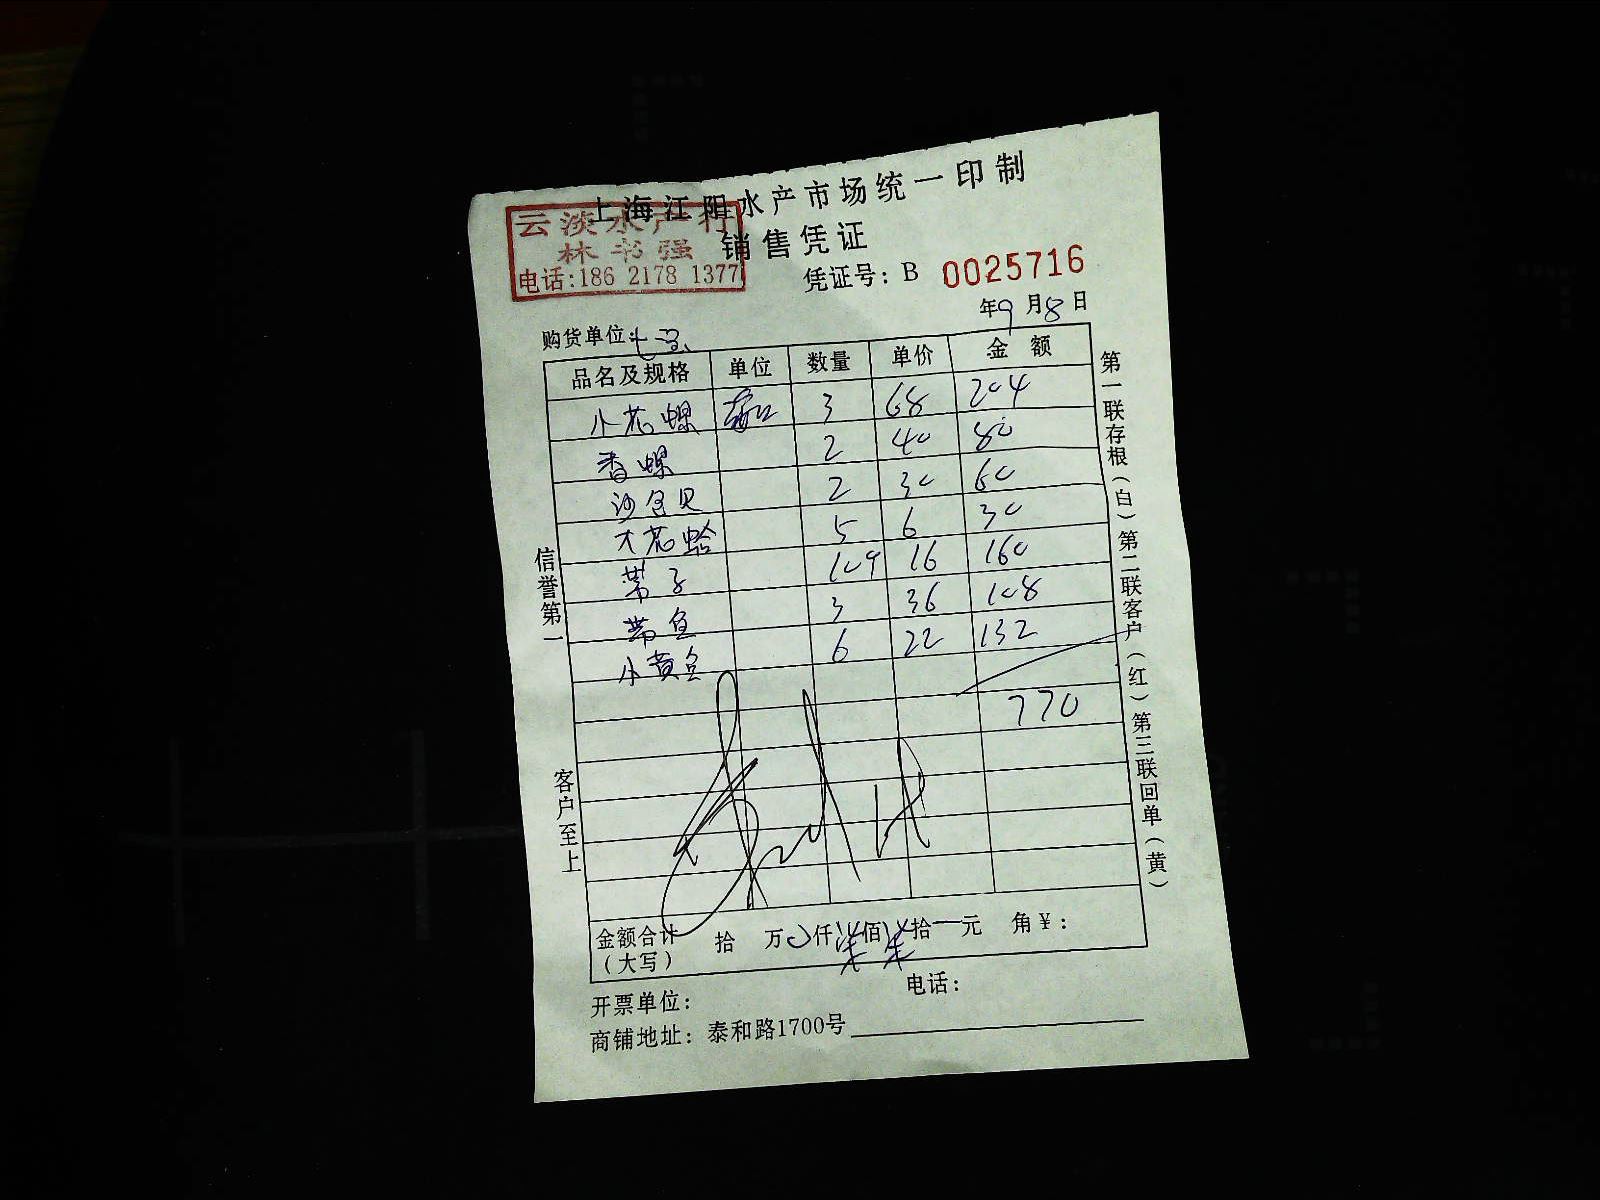 上海江阳水产市场统一印制
云淡水产行
林书强
电话:186 2178 1377
销售凭证
凭证号: B 0025716
年9月8日
购货单位:
品名及规格 单位 数量 单价 金额
小花螺 3 68 204
香螺 2 40 80
沙白贝 2 30 60
大花蛤 5 6 30
带子 10 16 160
带鱼 3 36 108
小黄鱼 6 22 132
770
金额合计(大写) 拾 万 仟 柒佰 柒拾 元 角 ¥:
开票单位: 电话:
商铺地址: 泰和路1700号
信誉第一
客户至上
第一联存根(白) 第二联客户(红) 第三联回单(黄)